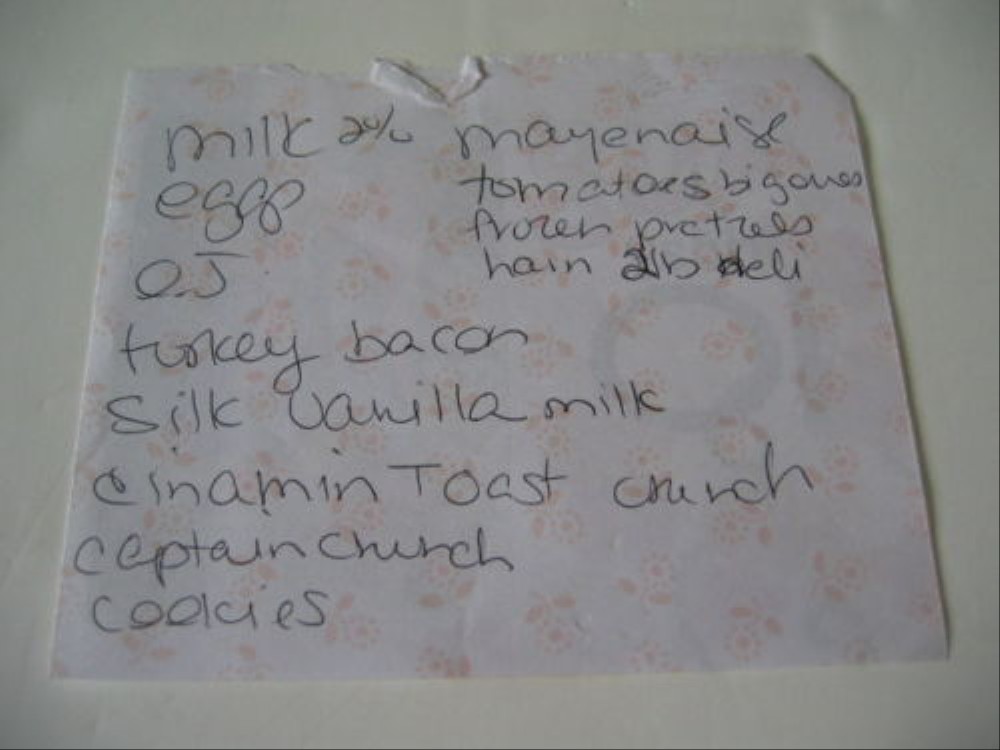 milk 2%
eggs
O.J
turkey bacon
Silk Vanilla milk
Cinamin Toast crunch
captain Chrunch
cookies
mayenaise
tomatoes big ones
frozen pretzels
ham 2lb deli